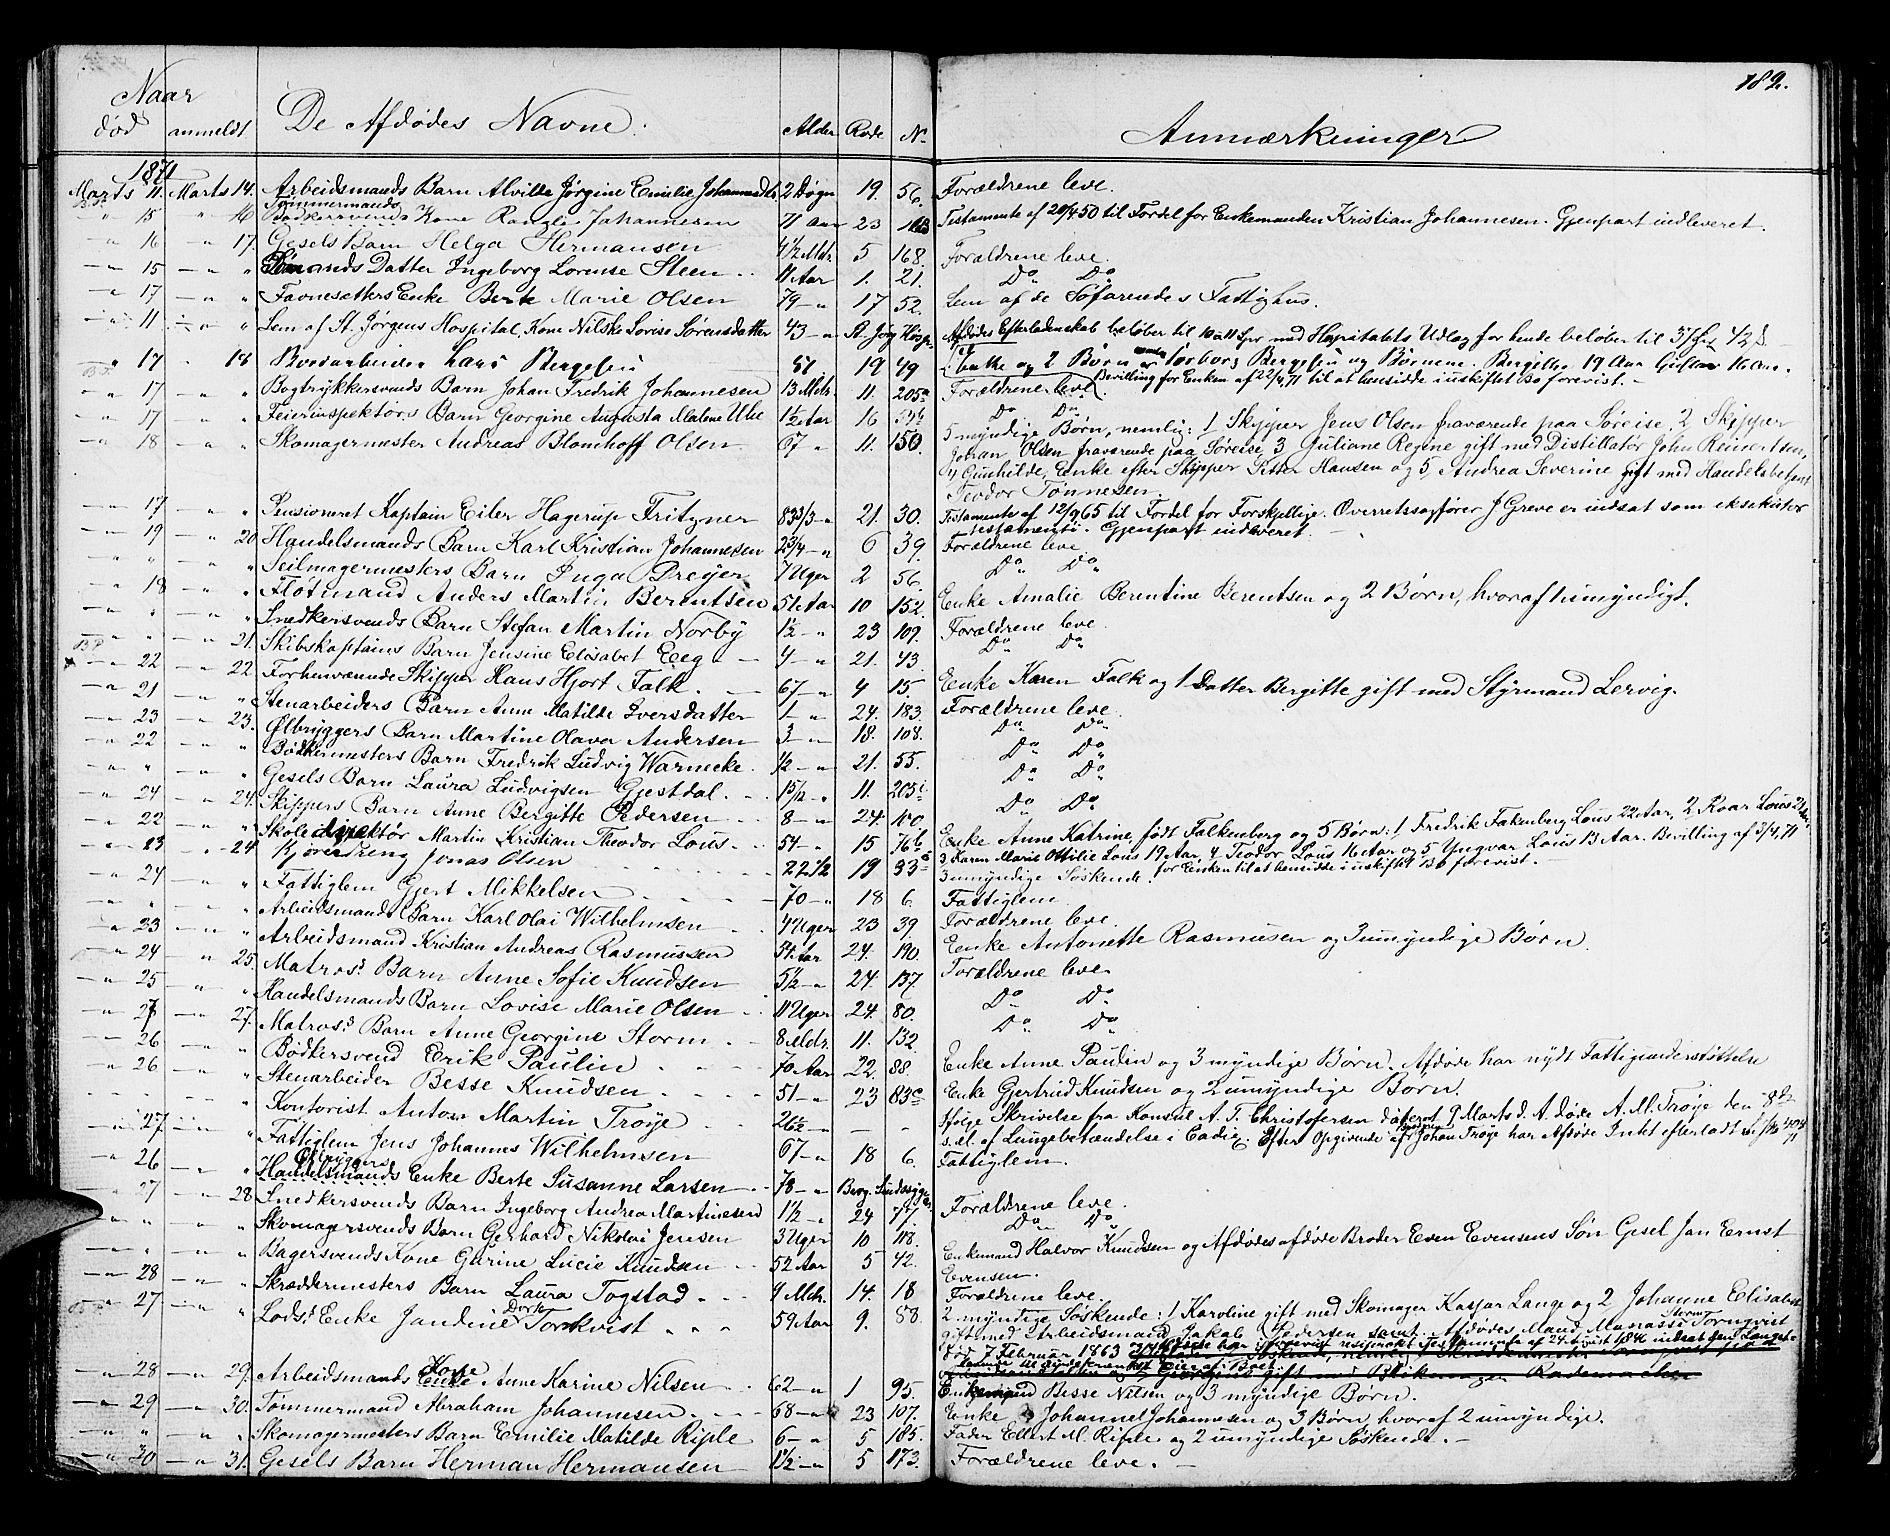 182.
Naar
død anmeldt De Afdødes Navne. Alder Rode No Anmærkninger
1871
Marts 11. Marts 14. Arbeidsmands Barn Alvilde Jørgine Emilie Johannesdtr 2 Døgn 19 56. Forældrene leve.
Tømmermands
15 16 Bødkersvends Kone Johannesen 71 Aar 23 Testamente af 20/4 50 til Fordel for Enkemanden Kristian Johannesen. Gjenpart indleveret.
16 17. Gesels Barn Helga Hermansen 4 1/2 Mdr. 5 168. Forældrene leve.
15 " Datter Ingeborg Lorense Steen 11 Aar 1. 21. Do Do
17 " Favnesetters Enke Berte Marie Olsen 79 " 17 52. Lem af de Søfarendes Fattighus.
11 " Lem af St. Jørgens Hospital, Kone Nilske Lovise Sørensdatter 43 " St. Jørg Hosp. Afdødes Efterladenskab beløber til 10 a 11 Spr med Hospitalets Udlæg for hende beløber til
17 18 Bordarbeider Lars Bergesen 51 19 49 Enke og 2 Børn Torborg Bergesen og Børnene: Bergitte 19 Aar 16 Aar.
17 " Bogtrykkersvends Barn Johan Fredrik Johannesen 13 Mdr. 11. 205a Forældrene leve. Bevilling for Enken af 22/4 71 til at hensidde i uskiftet Bo forevist.
17 " Feierinspektørs Barn Georgine Augusta Malene Ube 1 1/2 Aar 16 Do Do
18 " Skomagermester Andreas Blomhoff Olsen 67 " 11. 150. 5 myndige Børn, nemlig: 1 Skipper Jens Olsen fraværende paa Søreise, 2 Skipper
Johan Olsen fraværende paa Søreise, 3 Juliane Regine gift med Distillatør John Reinertsen,
4 Gunhilde, Enke efter Skipper Hansen og 5, Andrea Severine gift med Handelsbetjent
Teodor Tønnesen.
17 " Pensioneret Kaptain Eiler Hagerup Fritzner 83 21. 30. Testamente af 12/9 65 til Fordel for Forskjellige. Overretssagfører J Greve er indsat som eksekutor
testamenti. Gjenpart indleveret.
19 20 Handelsmands Barn Karl Kristian Johannesen 2 3/4 " 6 39. Forældrene leve.
" " Seilmagermesters Barn Inga Dreyer 7 Uger 2 56. Do Do
18 " Fløtmand Anders Martin Berentsen 51 Aar 10 152. Enke Amalie Berentine Berentsen og 2 Børn, hvoraf 1 umyndigt.
" " Snedkersvends Barn Stefan Martin Norby 1 1/2 " 23 109. Forældrene leve.
" 21. Skibskaptains Barn Jensine Elisabet Eeg 4 " 21. 43. Do Do
22 22. Forhenværende Skipper Hans Hjort Falk. 67 " 4 15. Enke Karen Falk og 1 Datter Bergitte gift med Styrmand Lervig.
21 " Stenarbeiders Barn Anne Matilde Iversdatter 1 " 24. 183. Forældrene leve.
23 23. Ølbryggers Barn Martine Olava Andersen 3 " 18. 108. Do Do
22 " Bødkermesters Barn Fredrik Ludvig Warneke. 1/2 " 21. 55. Do Do
" " Gesels Barn Laura Ludvigsen Gjestdal. 11. Do Do
24 24. Skippers Barn Anne Bergitte Pedersen 8 " 24. 100. Do Do
22 " Skoledirektør Martin Kristian Theodor Lous. 54 " 15 76b Enke Anne Katrine, født Falkenberg og 5 Børn: 1 Fredrik Falkenberg Lous 22 Aar, 2 Roar Lous 21 Aar,
3 Karen Marie Ottilie Lous 19 Aar, 4 Teodor Lous 16 Aar og 5 Yngvar Lous 13 Aar. Bevilling af 3/4 71
for Enken til at hensidde i uskiftet Bo forevist.
23 24 Kjøredreng Jonas Olsen 22 1/2 19 33a 3 umyndige Søskende.
24 " Fattiglem Gjert Mikkelsen 70 " 18 6. Fattiglem.
" " Arbeidsmands Barn Karl Olai Wilhelmsen 4 Uger 23 39. Forældrene leve.
23 " Arbeidsmand Kristian Andreas Rasmussen 54 Aar 24. 190. Enke Antonette Rasmusen og 3 umyndige Børn.
24 25. Matros's Barn Anne Sofie Knudsen 5 1/2 " 24 137 Forældrene leve.
25 " Handelsmands Barn Lovise Marie Olsen 11 Uger 24. 80. Do Do
27. Matros's Barn Anne Georgine Storm. 8 Mdr. 11. 132. Do Do
26 " Bødkersvend Erik Paulin 70 Aar 22. 88. Enke Anne Paulin og 3 myndige Børn. Afdøde har nydt Fattigunderstøttelse
26 " Stenarbeider Besse Knudsen 51 " 23 83c Enke Gjertrud Knudsen og 2 umyndige Børn.
Kontorist Anton Martin Trøye 26 1/2 Ifølge Skrivelse fra Konsul A. T. Christofersen dateret 9 Marts d. A. døde A. M. Trøye den 8de
s. M. af Lungebetændelse i Cadiz. Efter Opgivende af Broderen Johan Trøye har Afdøde Intet efterladt sig
27 " Fattiglem Jens Johannes Wilhelmsen 67 " 18 6. Fattiglem.
26 " Handelsmands Enke Berte Susanne Larsen 78 " Berg. Sindssyge
27 28 Snedkersvends Barn Ingeborg Andrea Martinesen 1 1/2 " 24 77. Forældrene leve.
" " Skomagersvends Barn Gerhard Nikolai Jensen 3 Uger 10 118. Do Do
" " Bagersvends Kone Gurine Lucie Knudsen 52 Aar 5 42. Enkemand Halvor Knudsen og Afdødes afdøde Broder Even Evensens Søn Gesel Jan Ernst
Evensen.
28 " Skræddermesters Barn Laura Togstad 9 Mdr. 14. 18 Forældrene leve.
27 " Lods's Enke Jandine Dorte Tornkvist 59 Aar 9. 88. 2 myndige Søskende: 1 Karoline gift med Skomager Kaspar Lange og 2 Johanne Elisabet
gift med Arbeidsmand Jakob Pedersen samt Afdødes Mand Manasse Storm Tornqvist
død 7 Februar 1863
28 29. Arbeidsmands Kone Anne Karine Nilsen 62 " 1 95. Enkemand Besse Nilsen og 3 myndige Børn.
29 30. Tømmermand Abraham Johannesen 68 " 23 107. Enke Johanne Johannesen og 3 Børn, hvoraf 2 umyndige.
" " Skomagermesters Barn Emilie Matilde Riple 6 " 5 185. Fader Ellert M. Riple og 2 umyndige Søskende.
30 31. Gesels Barn Herman Hermansen 1 1/2 " 5 173. Forældrene leve.